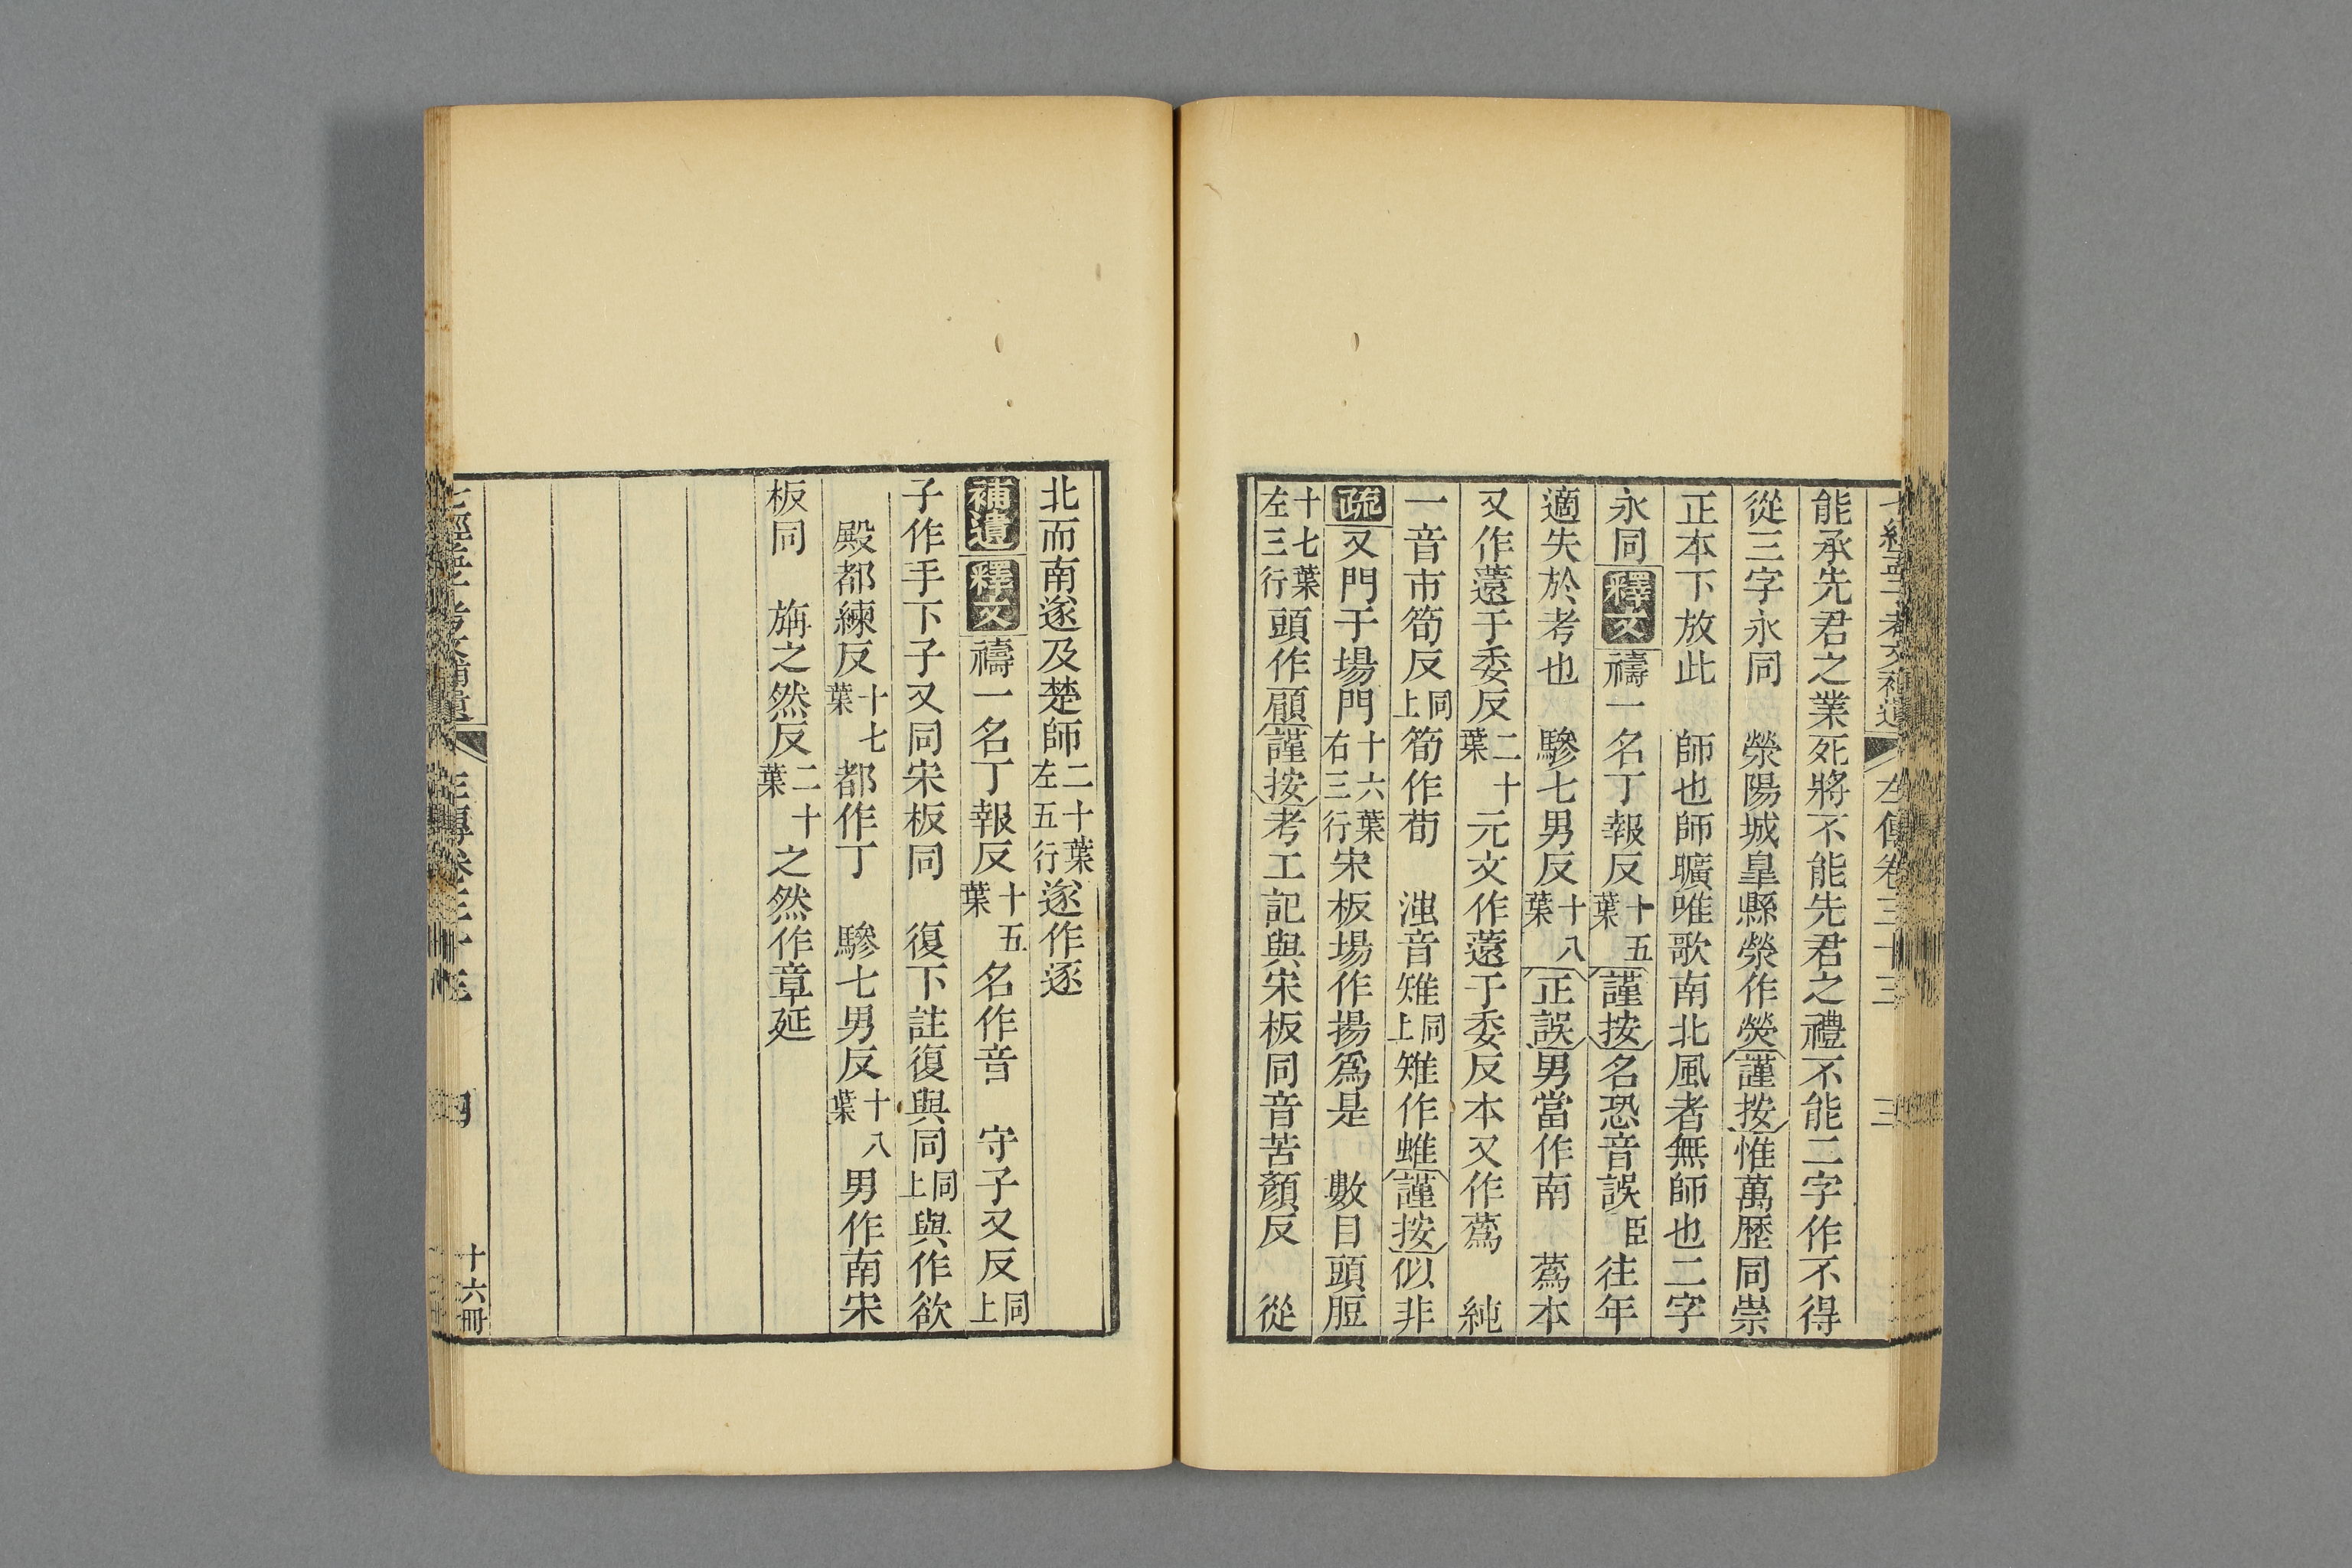 能承先君之業死將不能先君之禮不能二字作不得
從三字永同 滎陽城皐縣滎作熒謹按惟萬歷同崇
正本下放此 師也師曠唯歌南北風者無師也二字
永同釋文禱一名丁報反十五葉謹按名恐音誤臣往年
適失於考也 驂七男反十八葉正誤男當作南 蔿本
又作薳于委反二十葉元文作薳于委反本又作蔿 純
一音市筍反同上筍作荀 浊音雉同上雉作蜼謹按似非
疏又門于場門十六葉右三行宋板場作揚爲是 數目頭脰
十七葉左三行頭作顧謹按考工記與宋板同音苦顏反 從
北而南遂及楚師二十葉左五行遂作逐
補遺釋文禱一名丁報反十五葉名作音 守子又反同上
子作手下子又同宋板同 復下註復與同同上與作欲
殿都練反十七葉都作丁 驂七男反十八葉男作南宋
板同 旃之然反二十葉之然作章延
十六冊